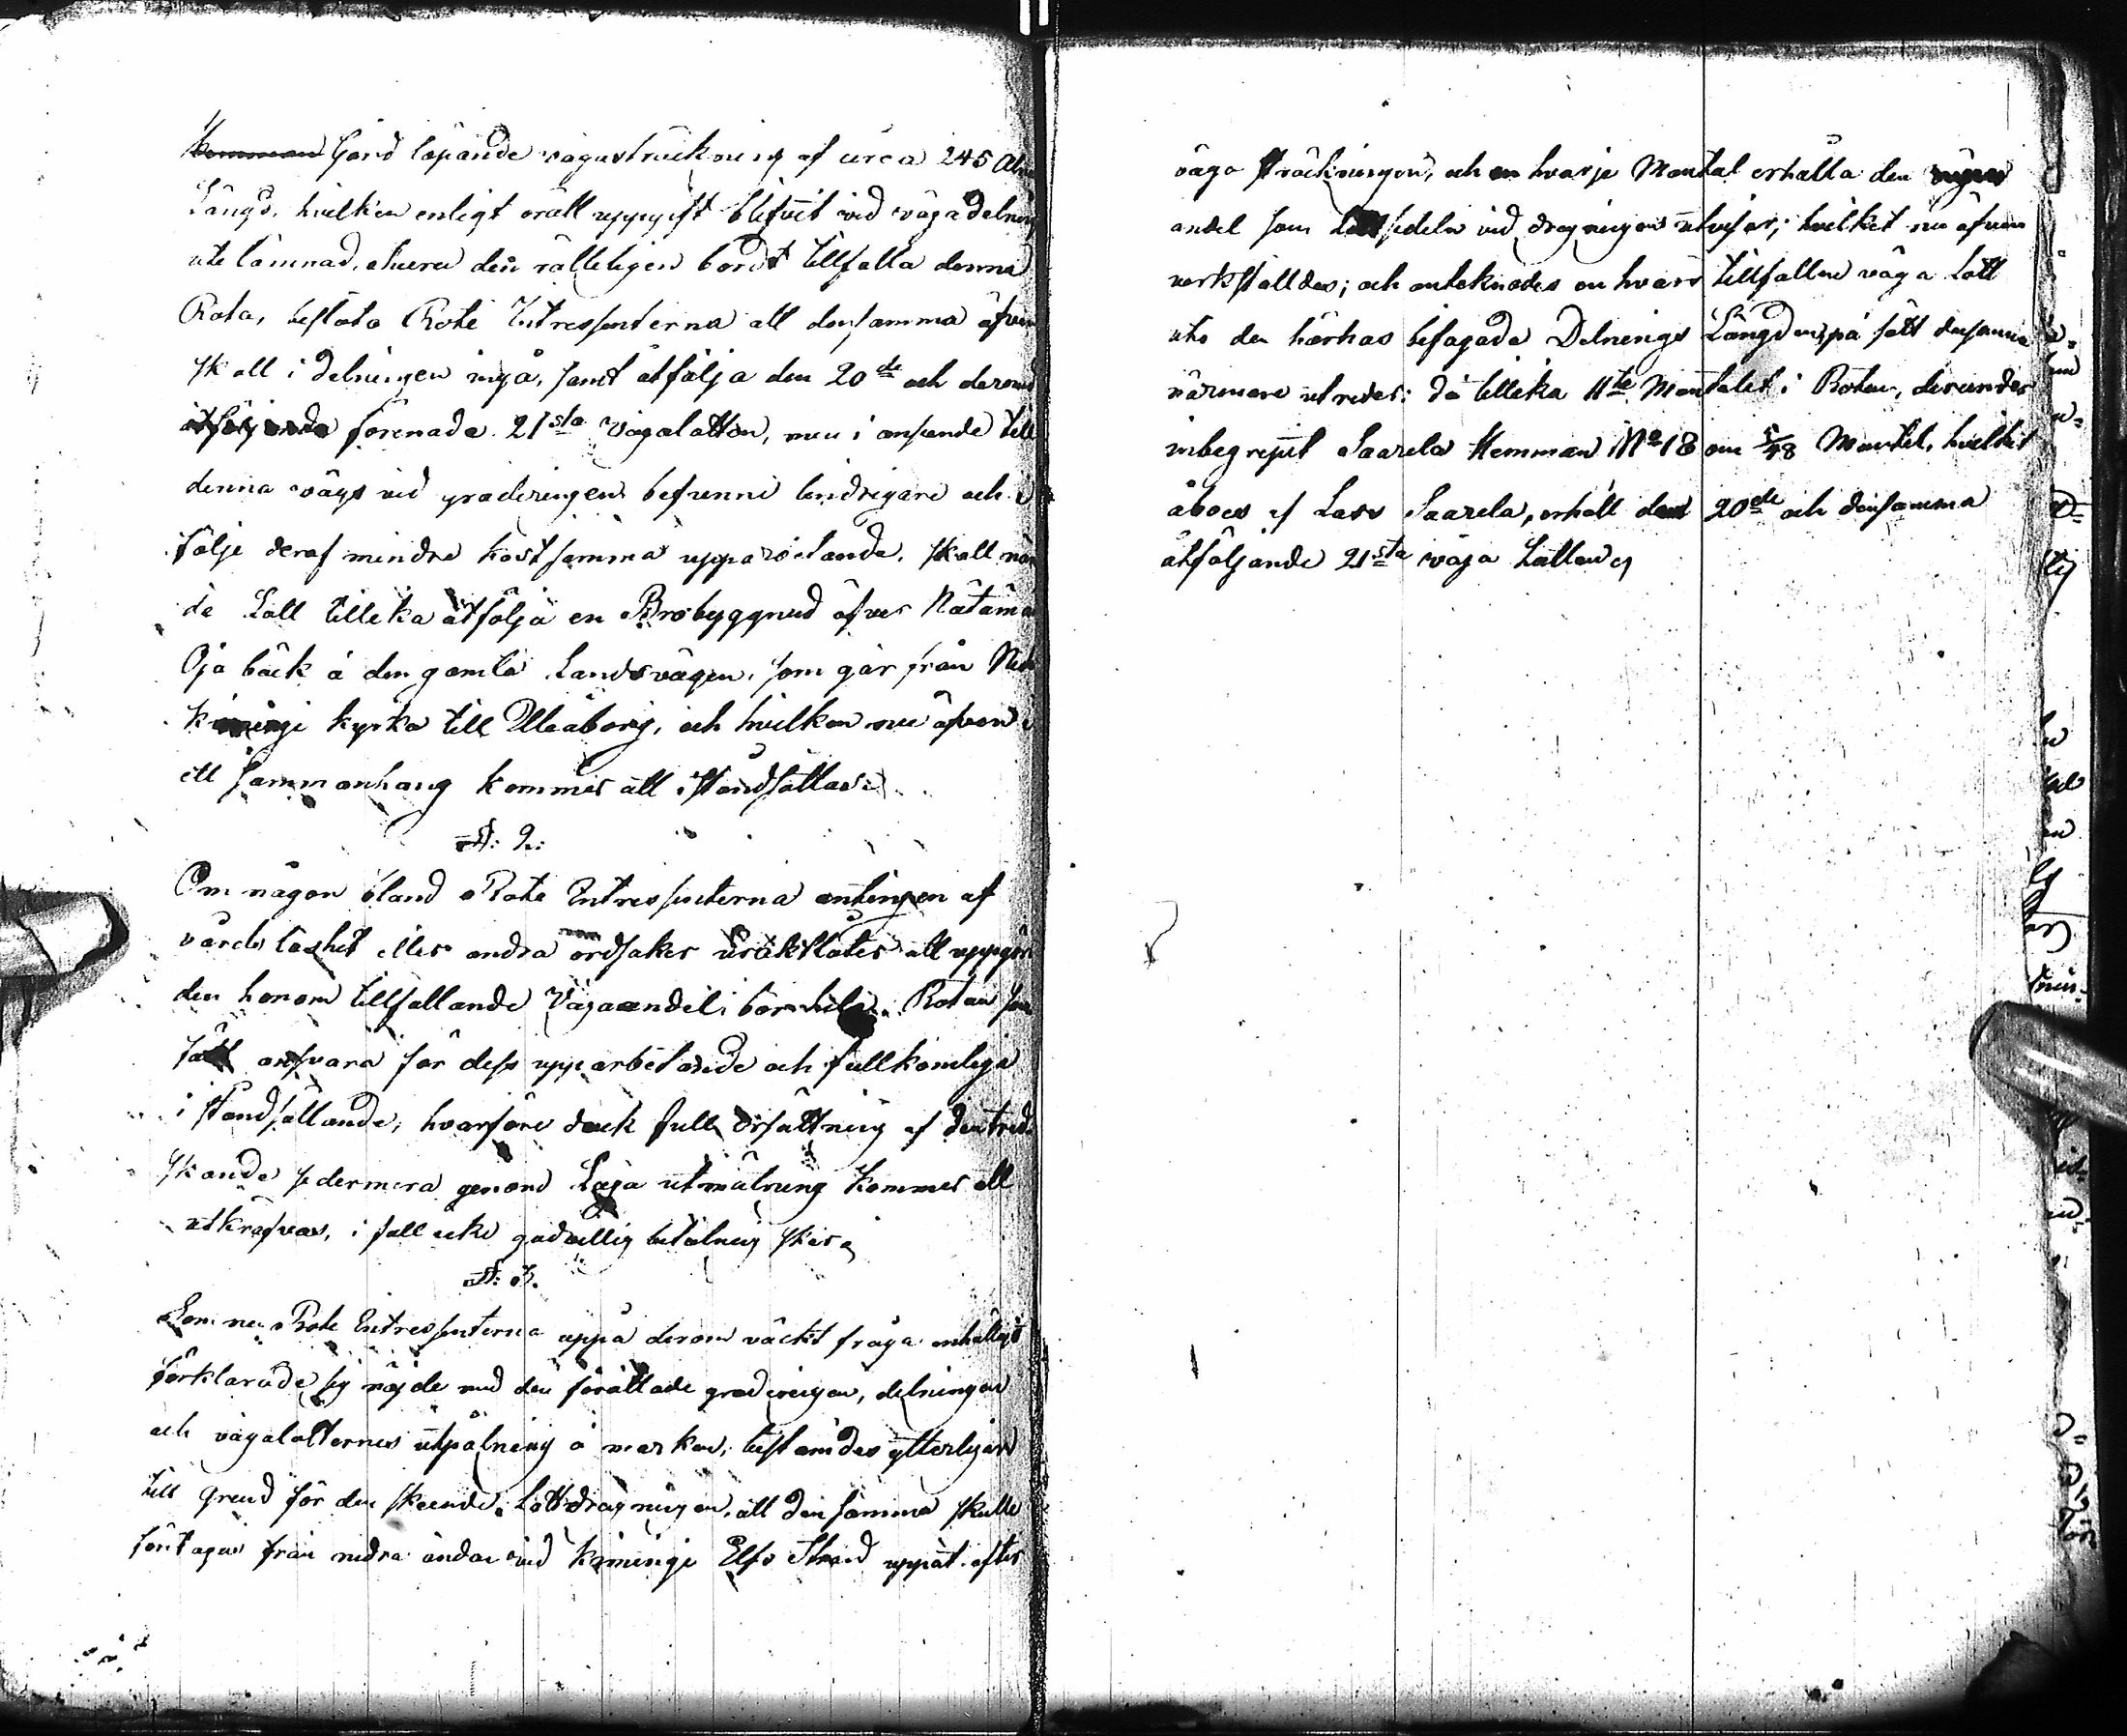 Hemman Gård löpande vägasträckning af circa 245 Aln
Längd, hvilken enligt orätt uppgift blifvit vid vägadelning
utelämnad, churu den rätteligen bordt tillfalla denna
Rota, besluto Rote Intressenterna att densamma äfven
skall i delningen ingå, samt åtfölja den 20de och
åtföljande förenade 21sta Vägalotten, men i anseende till
denna vägs vid graderingen befunne lindrigare och i
följe deraf mindre kostsamma upparbetande, skall
de Lott tillika åtfölja en Brobyggnad öfver
Oja bäck å den gamla Landsvägen, som går från
kiminge kyrka till Uleåborg, och hvilken nu äfven i
ett sammanhang kommer att iståndsättas.
§: 2:
Om någon bland Rote Intressenterna antingen af
vårdslöshet eller andra ordsaker uraktlåter att uppgöra
den honom tillfallande Vägaandel; bör hela Rotan
ansvara för dess upparbetande och fullkomliga
iståndsättande, hvarföre dock full ersättning af den tred-
skande sedermera genom Laga utmätning kommer att
utkräfvas, i fall icke godvillig betalning sker.
§: 3.
Som nu Rote Intressenterna uppå derom väckt fråga enhälligt
förklarade sig nöjde med den förrättade graderingen, delningen
och vägalotternes utpålning å marken, bestämdes ytterligare
till grund för den skeende Lottdragningen, att den samma skulle
företagas från nedra ändan vid kiminge Elfs Strand uppåt efter
väga sträckningen, och en hvarje Mantal erhålla den
andel som Lottsedeln vid dragningen utvisar; hvilket nu äfven
verkställdes; och anteknades en hvars tillfallne väga Lott
uti den härhos bifogade Delnings Längden, på sätt densamma
närmare utreder: då tillika 11te Mantalet i Rotan, derunder
inbegripit Saarela Hemman No 18 om 5/48 Mantal, hvilket
åboes af Lars Saarela, erhöll den 20de och densamma
åtföljande 21sta väga Lotten